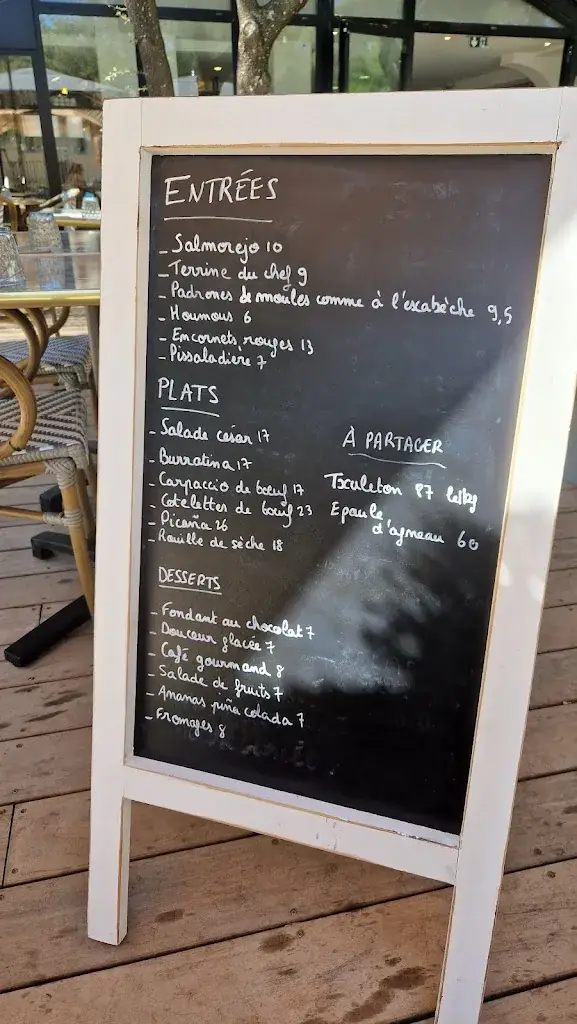 ENTRÉES
- Salmorejo 10
- Terrine du chef 9
- Padrones de moules comme à l'escabèche 9,5
- Houmous 6
- Encornets rouges 13
- Pissaladière 7
PLATS
- Salade césar 17
- Burratina 17
- Carpaccio de bœuf 17
- Cotelettes de bœuf 23
- Picaña 26
- Rouille de sèche 18
À PARTAGER
Txuleton 87 le/kg
Epaule
d'agneau 60
DESSERTS
- Fondant au chocolat 7
- Douceur glacée 7
- Café gourmand 8
- Salade de fruits 7
- Ananas piña colada 7
- Fromages 8